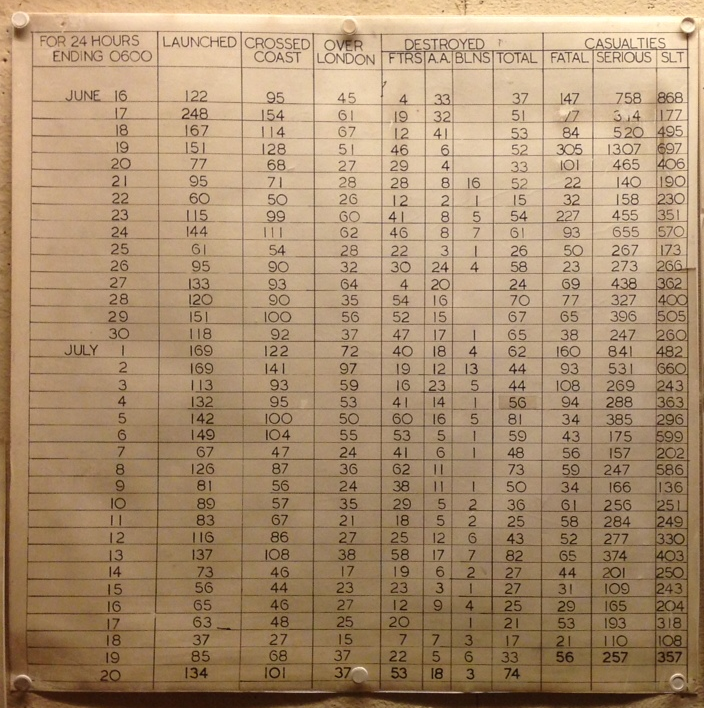 FOR 24 HOURS ENDING 0600 LAUNCHED CROSSED COAST OVER LONDON DESTROYED CASUALTIES
FTRS A.A. BLNS TOTAL FATAL SERIOUS SLT
JUNE 16 122 95 45 4 33 37 147 758 868
17 248 154 61 19 32 51 77 314 177
18 167 114 67 12 41 53 84 520 495
19 151 128 51 46 6 52 305 1307 697
20 77 68 27 29 4 33 101 465 406
21 95 71 28 28 8 16 52 22 140 190
22 60 50 26 12 2 1 15 32 158 230
23 115 99 60 41 8 5 54 227 455 351
24 144 111 62 46 8 7 61 93 655 570
25 61 54 28 22 3 1 26 50 267 173
26 95 90 32 30 24 4 58 23 273 266
27 133 93 64 4 20 24 69 438 362
28 120 90 35 54 16 70 77 327 400
29 151 100 56 52 15 67 65 396 505
30 118 92 37 47 17 1 65 38 247 260
JULY 1 169 122 72 40 18 4 62 160 841 482
2 169 141 97 19 12 13 44 93 531 660
3 113 93 59 16 23 5 44 108 269 243
4 132 95 53 41 14 1 56 94 288 363
5 142 100 50 60 16 5 81 34 385 296
6 149 104 55 53 5 1 59 43 175 599
7 67 47 24 41 6 1 48 56 157 202
8 126 87 36 62 11 73 59 247 586
9 81 56 24 38 11 1 50 34 166 136
10 89 57 35 29 5 2 36 61 256 251
11 83 67 21 18 5 2 25 58 284 249
12 116 86 27 25 12 6 43 52 277 330
13 137 108 38 58 17 7 82 65 374 403
14 73 46 17 19 6 2 27 44 201 250
15 56 44 23 23 3 1 27 31 109 243
16 65 46 27 12 9 4 25 29 165 204
17 63 48 25 20 1 21 53 193 318
18 37 27 15 7 7 3 17 21 110 108
19 85 68 37 22 5 6 33 56 257 357
20 134 101 37 53 18 3 74